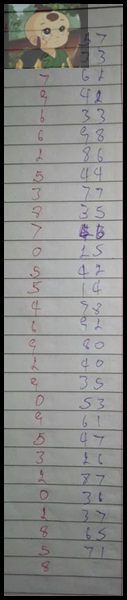 57
3
7 61
9 42
1 33
6 98
1 86
5 44
3 77
8 35
7
0 15
5 42
5 14
4 98
1 92
9 80
1 40
9 35
0 53
9 61
5 47
3 26
2 87
0 31
1 37
8 65
5 71
8